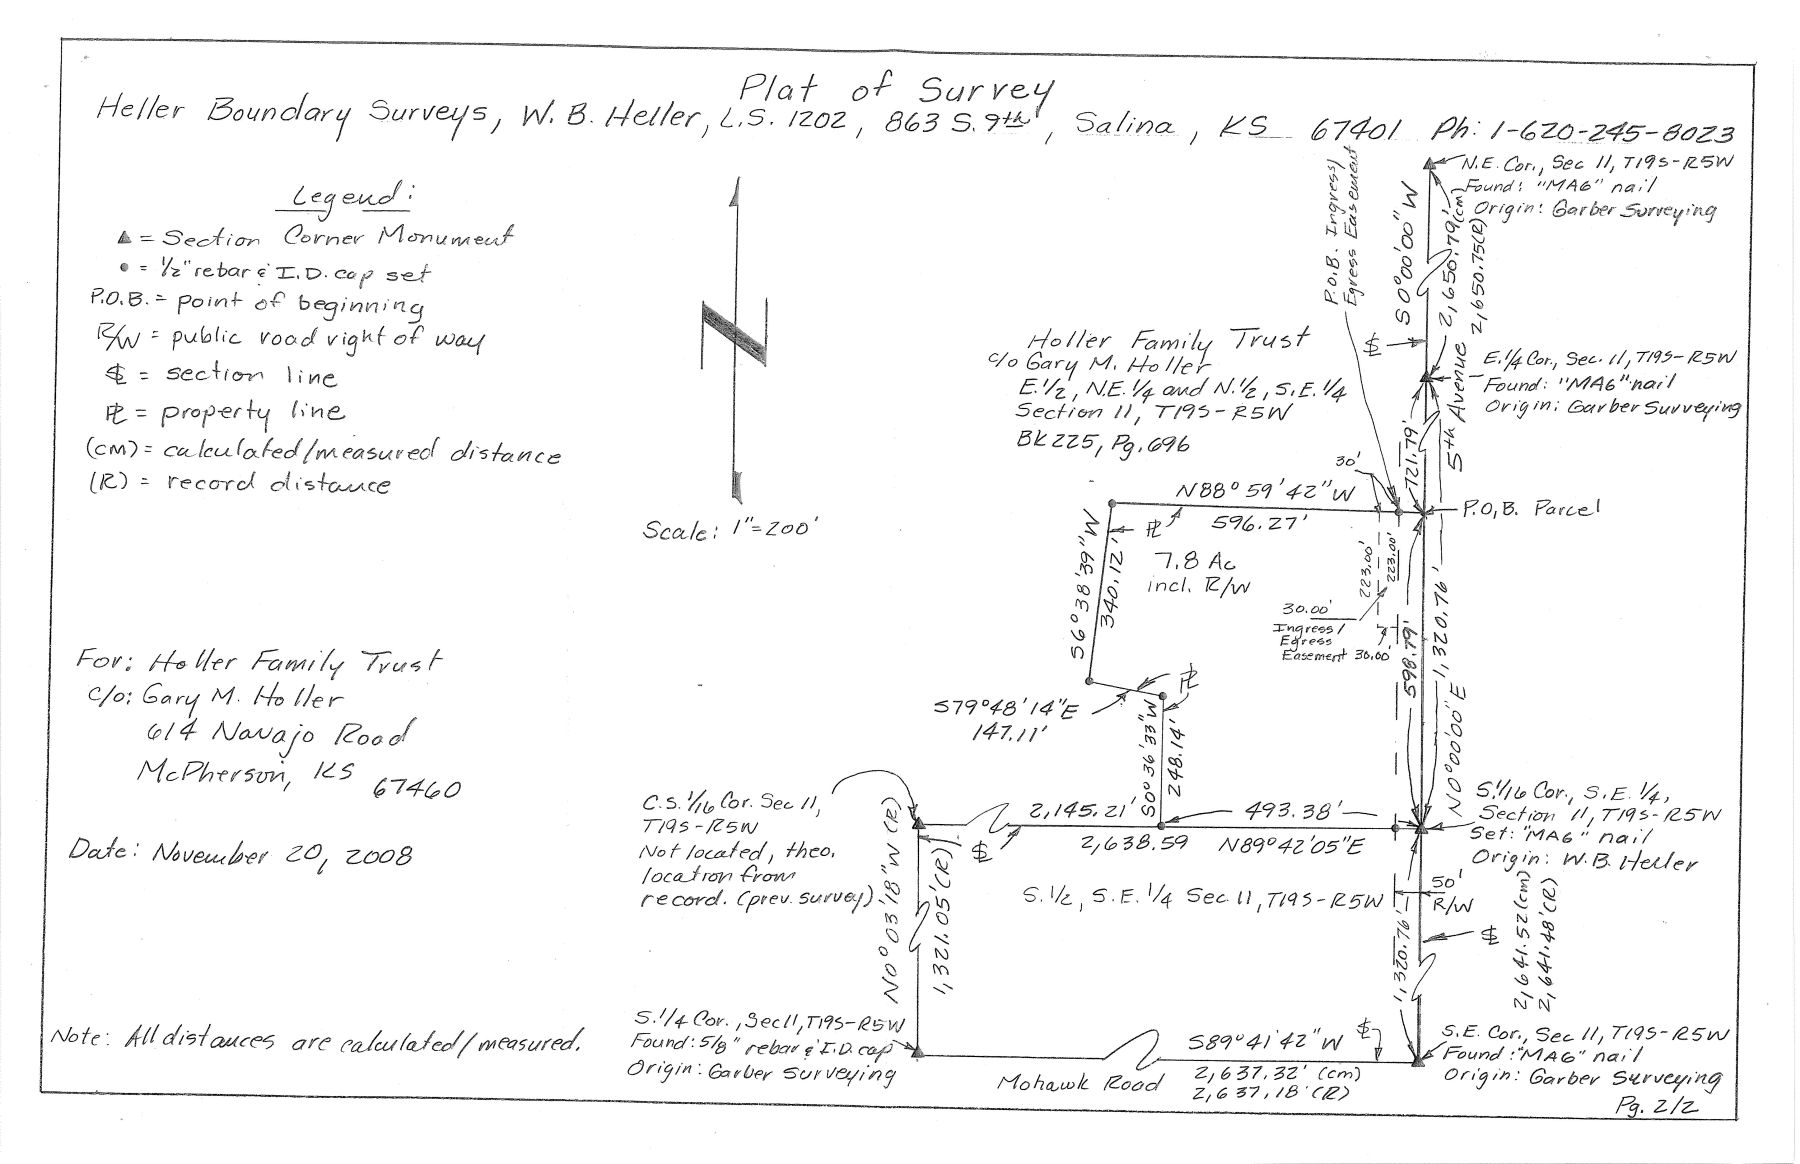 Plat of Survey
Heller Boundary Surveys, W. B. Heller, L.S. 1202, 863 S. 9th, Salina, KS 67401 Ph: 1-620-245-8023
Legend:
▲ = Section Corner Monument
• = 1/2" rebar & I.D. cap set
P.O.B. = point of beginning
R/W = public road right of way
SL = section line
PL = property line
(cm) = calculated/measured distance
(R) = record distance
Scale: 1"=200'
For: Holler Family Trust
c/o: Gary M. Holler
614 Navajo Road
McPherson, KS 67460
Date: November 20, 2008
Note: All distances are calculated/measured.
P.O.B. Ingress/
Egress Easement
S0°00'00"W
2,650.79'(cm)
2,650.75(R)
N.E. Cor., Sec 11, T19S-R5W
Found: "MAG" nail
Origin: Garber Surveying
Holler Family Trust
c/o Gary M. Holler
E.1/2, N.E.1/4 and N.1/2, S.E.1/4
Section 11, T19S-R5W
BK 225, Pg. 696
SL
5th Avenue
E.1/4 Cor., Sec. 11, T19S-R5W
Found: "MAG" nail
Origin: Garber Surveying
721.79'
30'
N88°59'42"W
596.27'
P.O.B. Parcel
S6°38'39"W
340.12'
PL
7.8 Ac
incl. R/W
223.00'
223.00'
30.00'
Ingress/
Egress
Easement 30.00'
598.79'
1,320.76'
N0°00'00"E
PL
S79°48'14"E
147.11'
S0°36'33"W
248.14'
C.S.1/16 Cor. Sec 11,
T19S-R5W
Not located, theo.
location from
record. (prev. survey)
2,145.21'
493.38'
2,638.59
N89°42'05"E
SL
S.1/16 Cor., S.E.1/4,
Section 11, T19S-R5W
Set: "MAG" nail
Origin: W.B. Heller
N0°03'18"W (R)
1,321.05'(R)
S.1/2, S.E.1/4 Sec. 11, T19S-R5W
50'
R/W
SL
1,320.76'
2,641.52(cm)
2,641.48'(R)
S.1/4 Cor., Sec 11, T19S-R5W
Found: 5/8" rebar & I.D. cap
Origin: Garber Surveying
S89°41'42"W
SL
Mohawk Road
2,637.32' (cm)
2,637.18' (R)
S.E. Cor., Sec 11, T19S-R5W
Found: "MAG" nail
Origin: Garber Surveying
Pg. 2/2